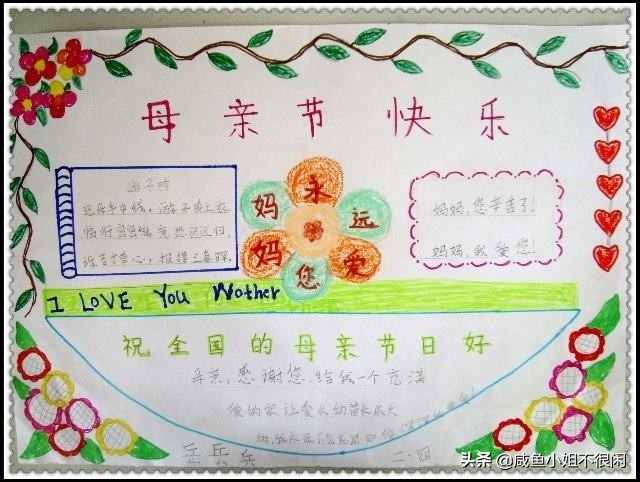 母亲节快乐
游子吟
慈母手中线，游子身上衣，
临行密密缝，意恐迟迟归，
谁言寸草心，报得三春晖
妈永远
妈您爱
妈妈，您辛苦了！
妈妈，我爱您！
I LOVE You Wother
祝全国的母亲节日好
母亲，感谢您，给我一个充满
爱的家让爱从幼苗长成大
二·四
头条 @咸鱼小姐不很闲